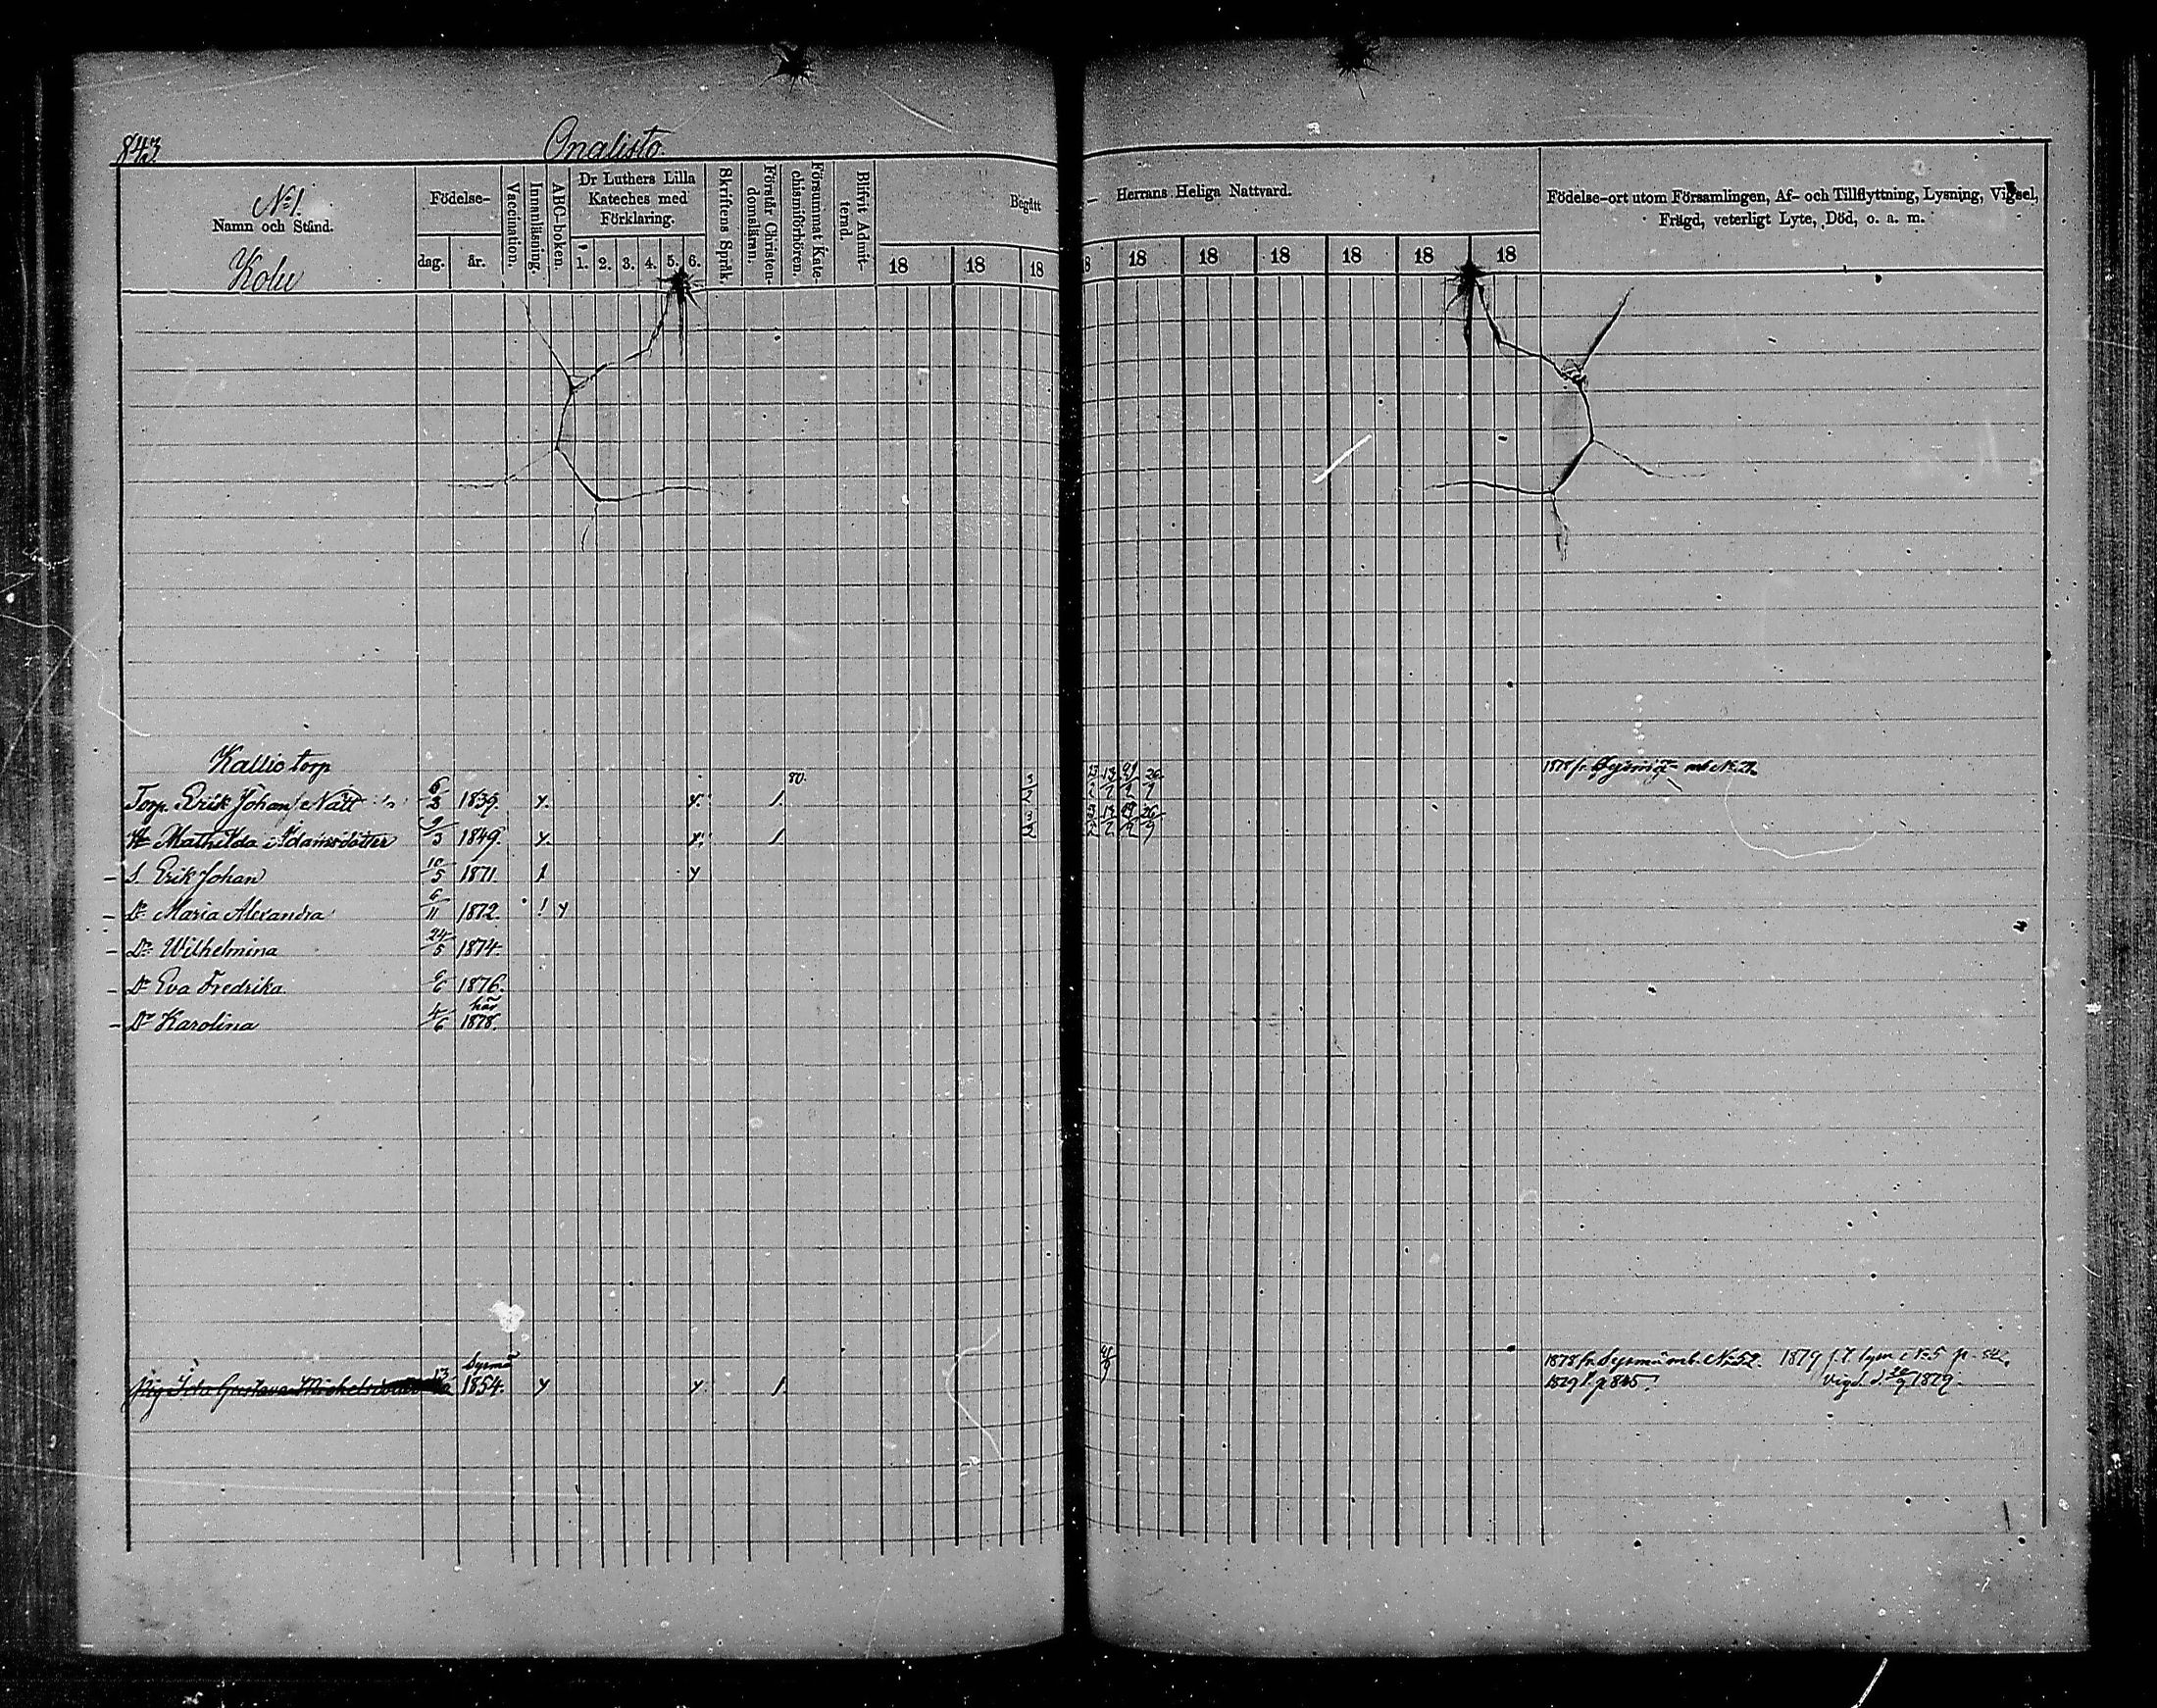 843.
Onalisto.
N:o 1.
Namn och Stånd.
Kolu
Födelse-
dag. år.
Vaccination.
Innanläsning.
ABC-boken.
Dr Luthers Lilla Kateches med Förklaring.
1. 2. 3. 4. 5. 6.
Skriftens Språk.
Förstår Christendomsläran.
Försummat Katechismiförhören.
Blifvit Admitterad.
Begått
18 18 18
Herrans Heliga Nattvard.
8 18 18 18 18 18 18
Födelse-ort utom Församlingen, Af- och Tillflyttning, Lysning, Vigsel,
Frägd, veterligt Lyte, Död, o. a. m.
Kallio torp
80.
1878 fr.
Torp. Erik Johan 6/3 1839. y. y. 1.
H. Mathilda Adamsdotter 9/3 1849. y. y. 1.
S. Erik Johan 10/5 1871. 1 y
Dr Maria Alexandra 6/11 1872. ! y
Dr Wilhelmina 24/5 1874.
Dr Eva Fredrika 1876.
här
Dr Karolina 4/6 1878.
Sysmä
Pig. Ida Gustava 1854. y y 1
1878 fr. Sysmä mb. No 52. 1879
1879 p 845. vigd. d. 1879.